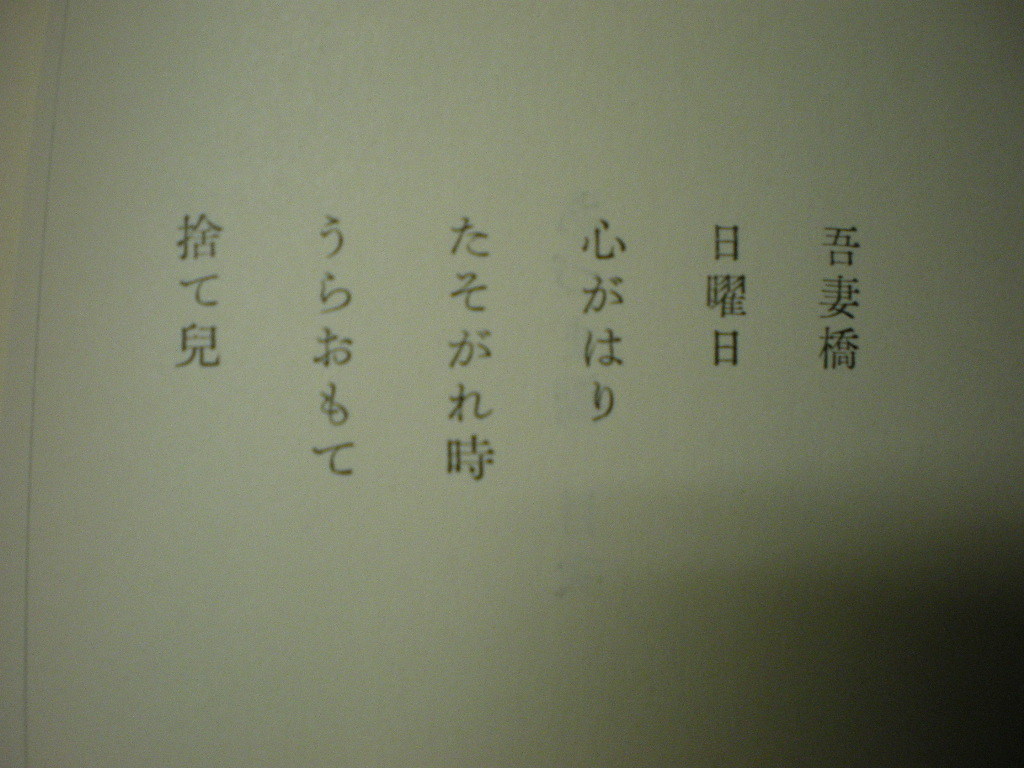 吾妻橋
日曜日
心がはり
たそがれ時
うらおもて
捨て兒